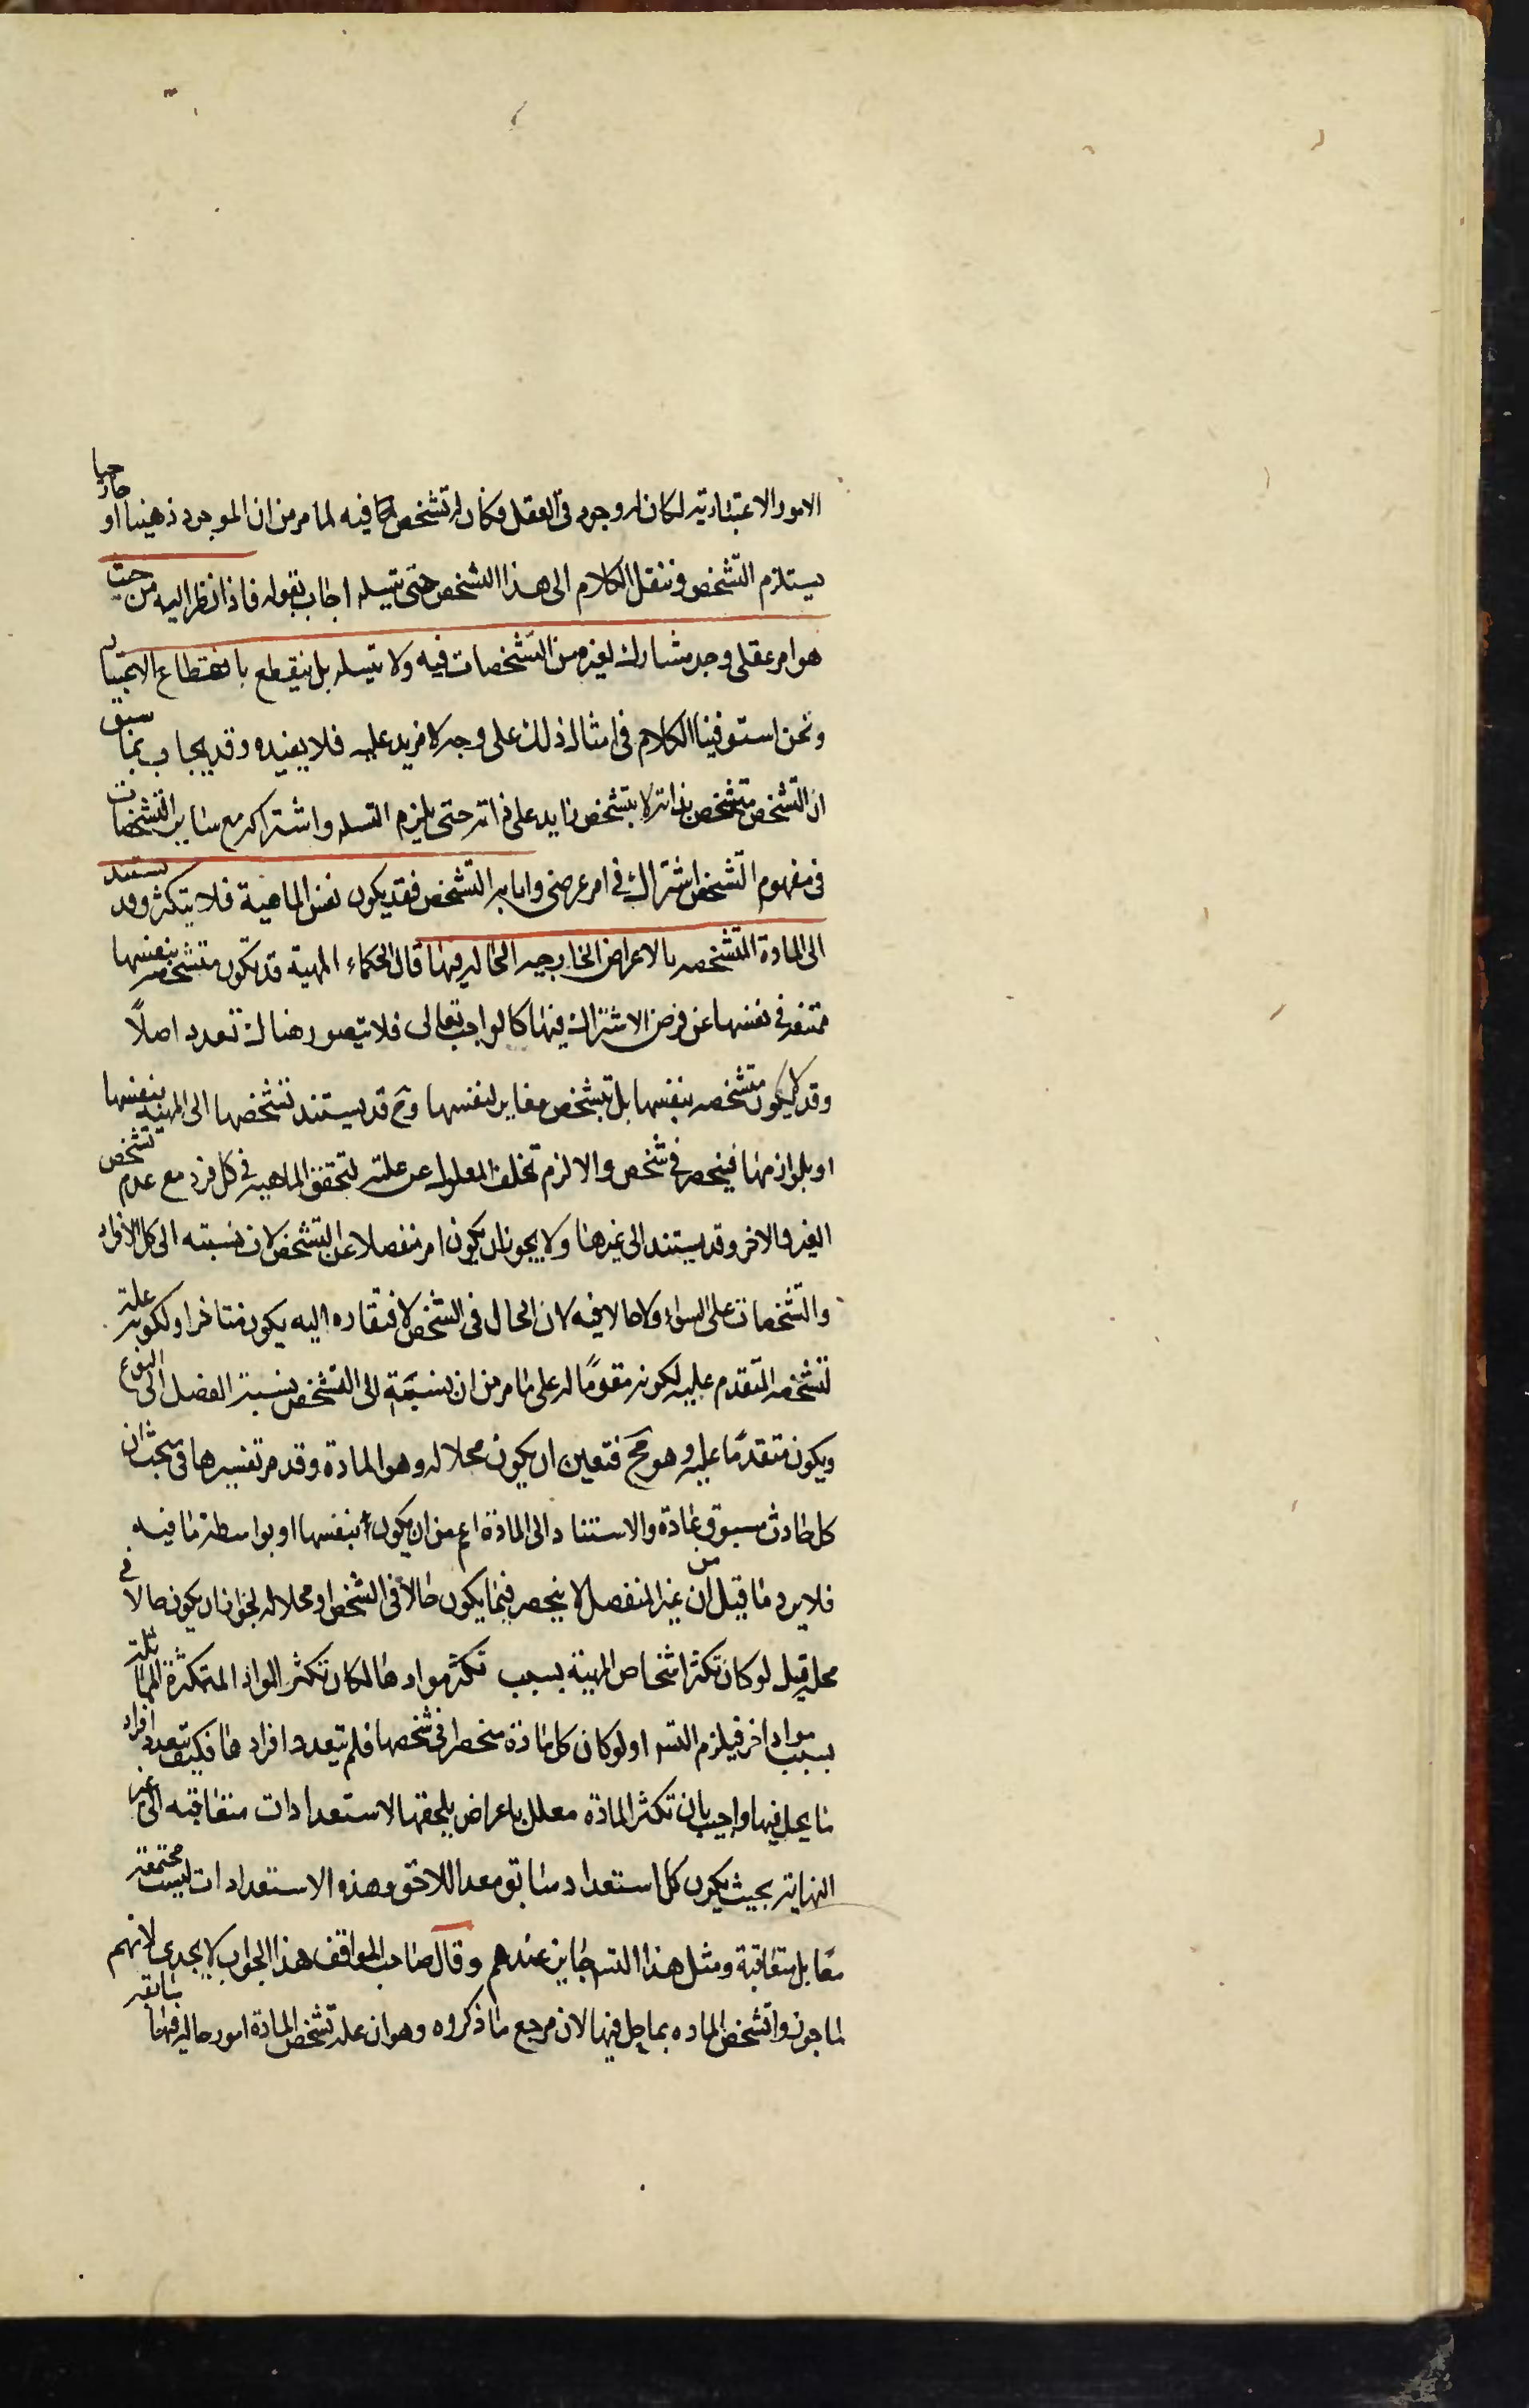 الامور الاعتبارية لكان له وجود في العقل فكان له تشخص كما فيه لما مر من ان الموجود ذهنيا او خارجيا
يستلزم التشخص وننقل الكلام الى هذا التشخص حتى يتسلسل اجاب بقوله فاذا نظر اليه من حيث
هو امر عقلي وجد مشاركا لغيره من التشخصات فيه ولا يتسلسل بل ينقطع بانقطاع الاعتبار
ونحن استوفينا الكلام في امثال ذلك على وجه لا مزيد عليه فلا يفيده وقد يجاب بما سبق
ان التشخص متشخص بذاته لا بتشخص زايد على ذاته حتى يلزم التسلسل واشتراكه مع ساير التشخصات
في مفهوم التشخص اشتراك في امر عرضي واما ما به التشخص فقد يكون نفس الماهية فلا يتكثر وقد يستند
الى المادة المتشخصه بالاعراض الخارجيه الحاله فيها قال الحكماء المهية قد تكون متشخصه بنفسها
ممتنعه في نفسها عن فرض الاشتراك فيها كالواجب تعالى فلا يتصور هناك تعدد اصلاً
وقد لا يكون متشخصه بنفسها بل بتشخص مغاير لنفسها وح قد يستند تشخصها الى المهية بنفسها
او بلوازمها فينحصر في شخص والا لزم تخلف المعلول عن علته لتحقق الماهيه في كل فرد مع عدم تشخص
الفرد الاخر وقد يستند الى غيرها ولا يجوز ان يكون امر منفصلا عن التشخص لان نسبته الى كل الافراد
والتشخصات على السواء ولا حالا فيه لان الحال في التشخص لافتقاره اليه يكون متاخرا ولكونه علة
لتشخصه المتقدم عليه لكونه مقومًا له على ما مر من ان نسبته الى التشخص نسبة الفصل الى النوع
ويكون متقدمًا عليه وهو مح فتعين ان يكون محلا له وهو المادة وقد مر تفسيرها في مبحث ان
كل حادث مسبوق بمادة والاستناد الى المادة اعم من ان يكون بنفسها او بواسطة ما فيه
فلا يرد ما قيل من ان غير المنفصل لا ينحصر فيما يكون حالا في الشخص او محلا له لجواز ان يكون حالا في
محله قيل لو كان تكثر اشخاص المهية بسبب تكثر موادها لكان تكثر المواد المتكثرة المماثلة
بسبب مواد اخر فيلزم التسلسل او لو كان كل مادة منحصرا في شخصها فلم يتعدد افرادها فكيف تعدد افراد
ما يحل فيها واجيب بان تكثر المادة معلل باعراض يلحقها لاستعدادات متعاقبه الى غير
النهاية بحيث يكون كل استعداد سابق معدا للاحق وهذه الاستعدادات ليست مجتمعة
معا بل متعاقبة ومثل هذا التسلسل جايز عندهم وقال صاحب المواقف هذا الجواب لا يجدي لانهم
لما جوزوا تشخص الماده بما حل فيها لان مرجع ما ذكروه وهو ان علة تشخص المادة امور حاله فيها سابقه